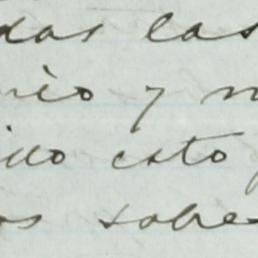 das las
rico y n
ido esto
os sobre